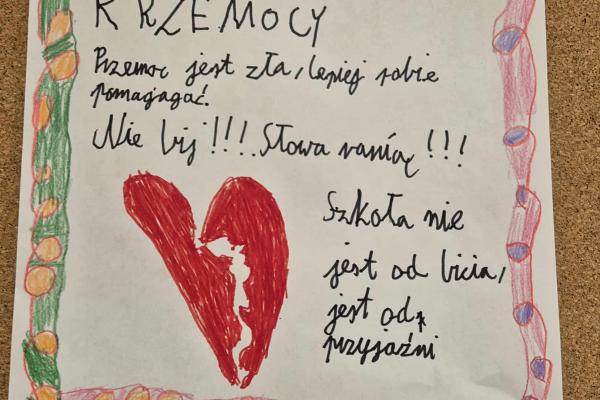 RZEMOCY
Przemoc jest zła, lepiej sobie
pomagagać.
Nie bij!!!. Słowa ranią!!!
Szkoła nie
jest od bicia,
jest od
przyjaźni